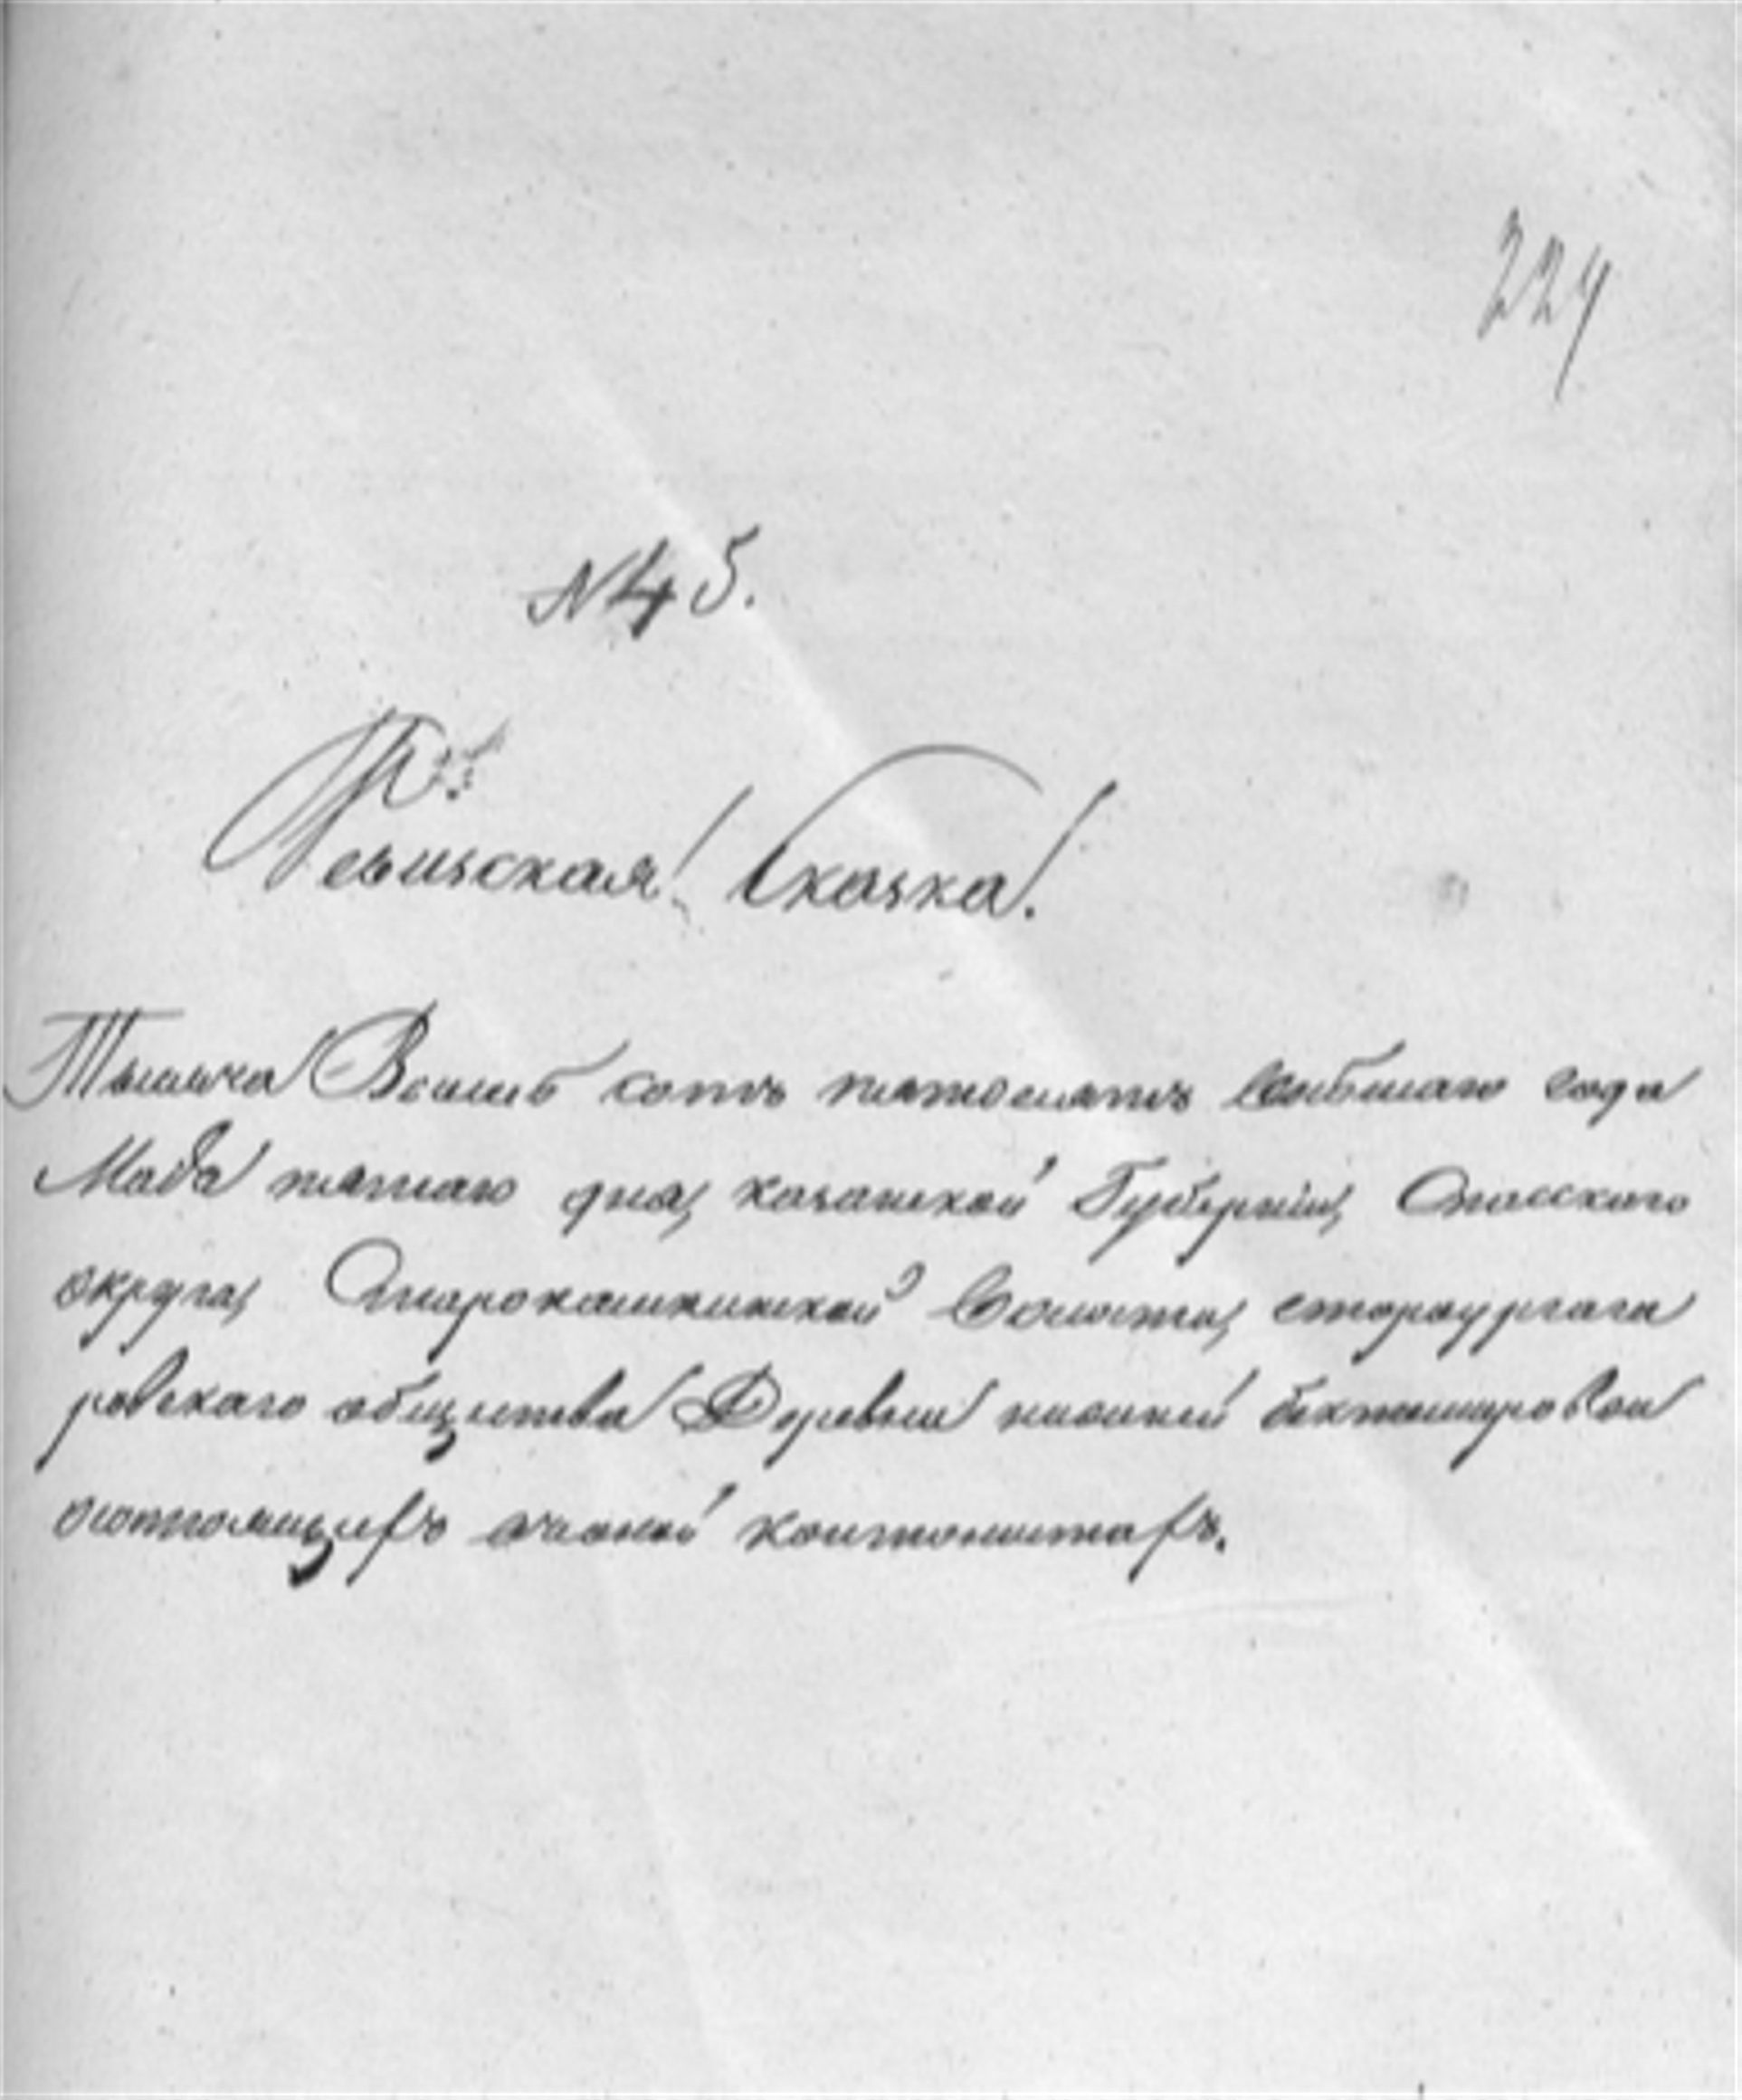 224
N 45.
Ревиская Скаска.
Тысяча Восимъ сотъ пятдесятъ восмаго года
Маія пятаго дня, казанской Губерніи, Спасского
округа, Старокашкинской Волости, староургага
ровскаго общества Деревни нижней бектимировой
состоящихъ контонистахъ.